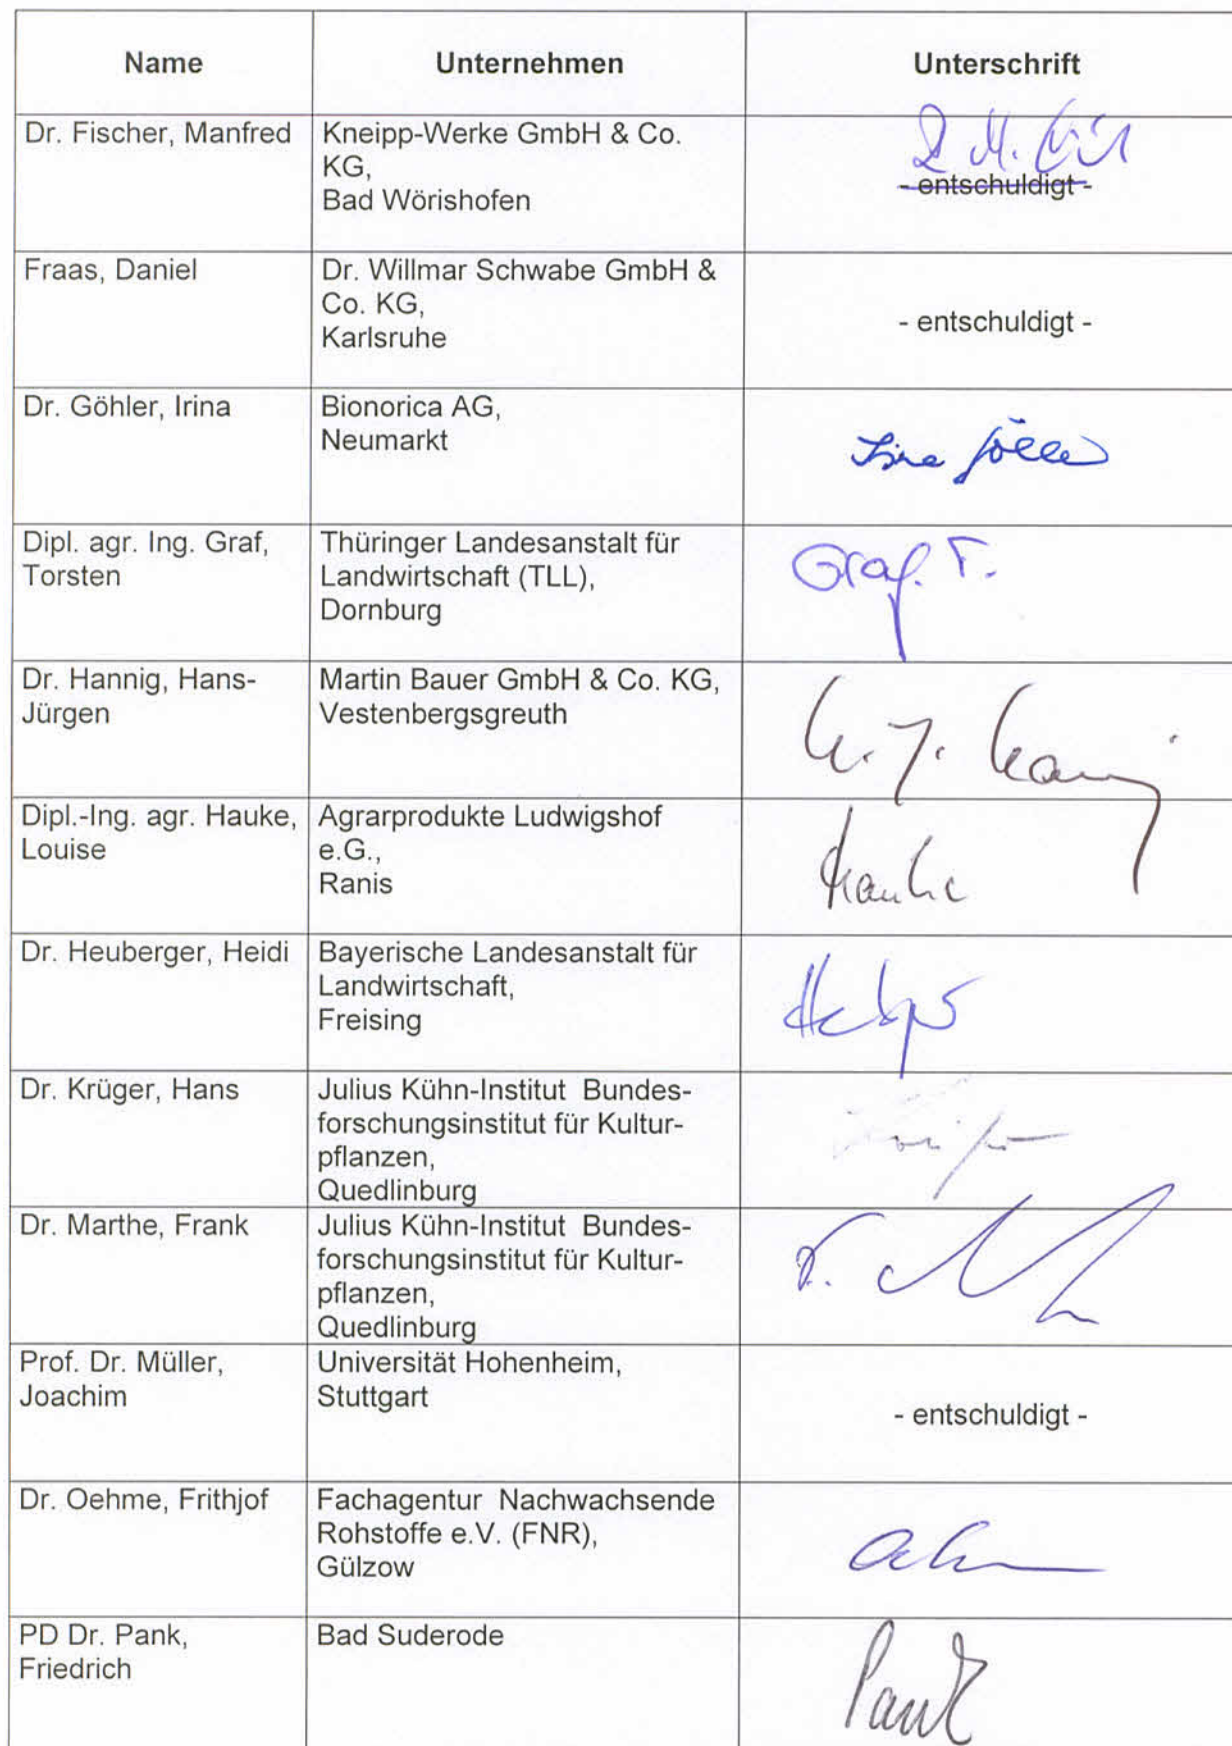 Name Unternehmen Unterschrift
Dr. Fischer, Manfred
Kneipp-Werke GmbH & Co.
KG,
Bad Wörishofen
- entschuldigt -
Fraas, Daniel
Dr. Willmar Schwabe GmbH &
Co. KG,
Karlsruhe
- entschuldigt -
Dr. Göhler, Irina
Bionorica AG,
Neumarkt
Dipl. agr. Ing. Graf,
Torsten
Thüringer Landesanstalt für
Landwirtschaft (TLL),
Dornburg
Graf. T.
Dr. Hannig, Hans-
Jürgen
Martin Bauer GmbH & Co. KG,
Vestenbergsgreuth
Dipl.-Ing. agr. Hauke,
Louise
Agrarprodukte Ludwigshof
e.G.,
Ranis
Hauke
Dr. Heuberger, Heidi
Bayerische Landesanstalt für
Landwirtschaft,
Freising
Dr. Krüger, Hans
Julius Kühn-Institut Bundes-
forschungsinstitut für Kultur-
pflanzen,
Quedlinburg
Dr. Marthe, Frank
Julius Kühn-Institut Bundes-
forschungsinstitut für Kultur-
pflanzen,
Quedlinburg
Prof. Dr. Müller,
Joachim
Universität Hohenheim,
Stuttgart
- entschuldigt -
Dr. Oehme, Frithjof
Fachagentur Nachwachsende
Rohstoffe e.V. (FNR),
Gülzow
PD Dr. Pank,
Friedrich
Bad Suderode
Pank